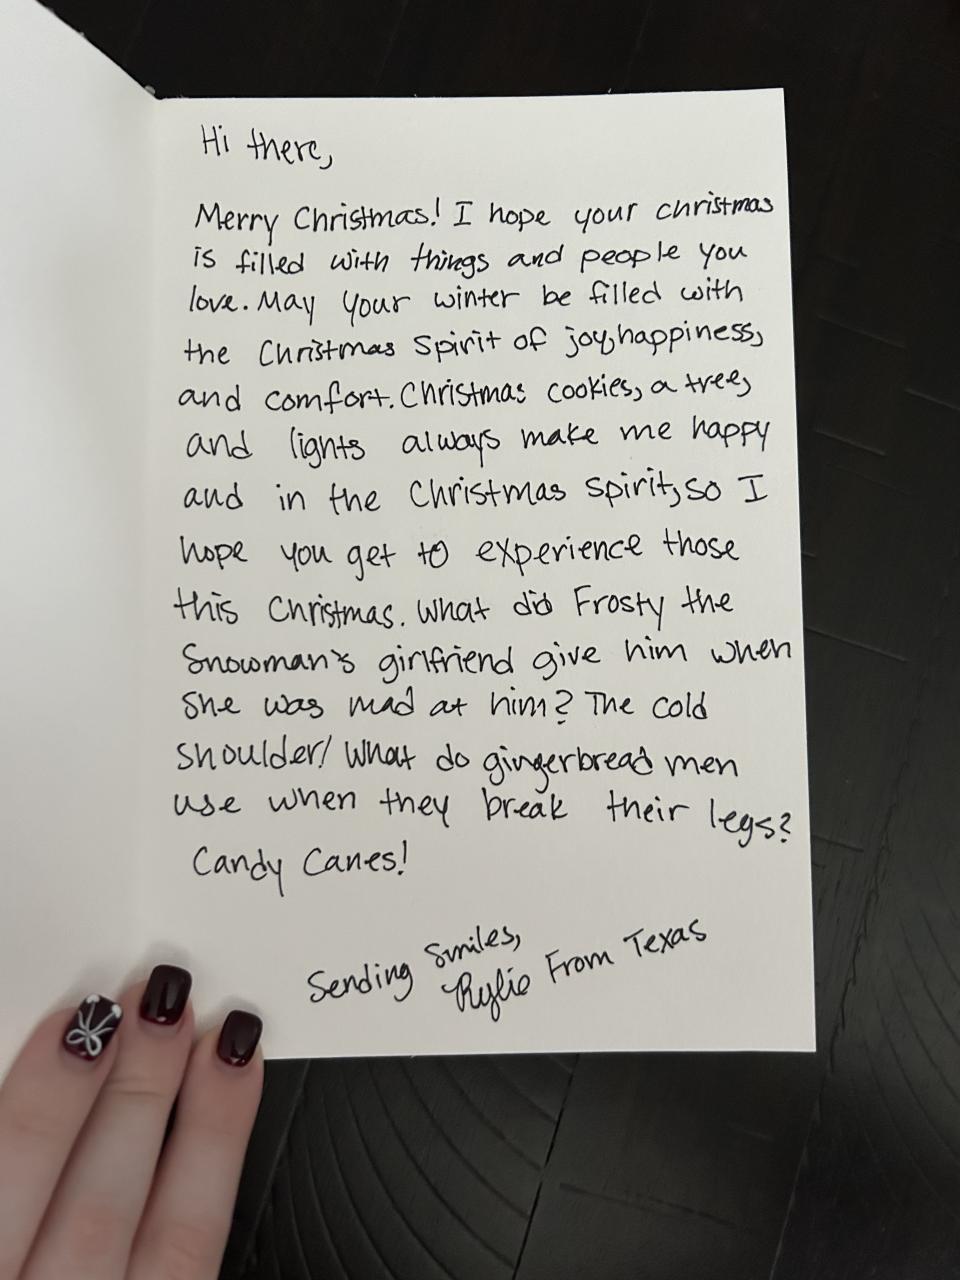 Hi there,
Merry Christmas! I hope your christmas
is filled with things and people you
love. May your winter be filled with
the Christmas spirit of joy, happiness,
and comfort. Christmas cookies, a tree,
and lights always make me happy
and in the Christmas spirit, so I
hope you get to experience those
this Christmas. What did Frosty the
Snowman's girlfriend give him when
she was mad at him? The cold
shoulder! What do gingerbread men
use when they break their legs?
Candy Canes!
Sending Smiles,
Rylie From Texas